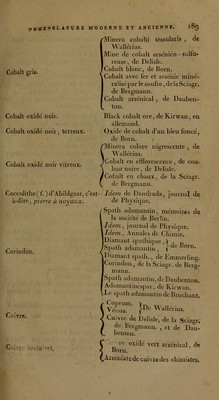 NOMENCLATURE MODERNE ET ANCIENNE. 189
Cobalt gris.
Minera cobalti tessularis, de
Wallérius.
Mine de cobalt arsénico-sulfu-
reuse, de Delisle.
Cobalt blanc, de Born.
Cobalt avec fer et arsénic miné-
ralisé par le soufre, de la Sciagr.
de Bergmann.
Cobalt arsénical, de Dauben-
ton.
Cobalt oxidé noir.
Black cobalt ore, de Kirwan, en
allemand.
Cobalt oxidé noir, terreux.
Oxide de cobalt d'un bleu foncé,
de Born.
Cobalt oxidé noir vitreux.
Minera colore nigrescente, de
Wallérius.
Cobalt en efflorescence, de cou-
leur noire, de Delisle.
Cobalt en chaux, de la Sciagr.
de Bergmann.
Coccolithe (f.) d'Abildgaar, c'est-
à-dire, pierre à noyaux.
Idem de Dandrada, journal de
de Physique.
Corindon.
Spath adamantin, mémoires de
la société de Berlin.
Idem, journal de Physique.
Idem, Annales de Chimie.
Diamant spathique,
Spath adamantin, } de Born.
Diamant spath., de Emmerling.
Corindon, de la Sciagr. de Berg-
mann.
Spath adamantin, de Daubenton.
Adamantinespar, de Kirwan.
Le spath adamantin de Brochant.
Cuivre.
Cuprum.
Vénus. } De Wallérius.
Cuivre de Delisle, de la Sciagr.
de Bergmann, et de Dau-
benton.
oxidé vert arsénical, de
Born.
Arseniate de cuivre des chimistes.